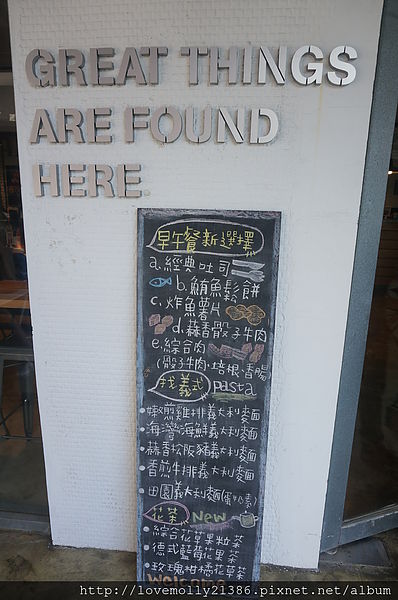 GREAT THINGS
ARE FOUND
HERE.
早午餐新選擇
a.經典吐司
b.鮪魚鬆餅
c.炸魚薯片
d.蒜香骰子牛肉
e.綜合肉
(骰子牛肉.培根.香腸
找義式 pasta
嫩煎雞排義大利麵
海灣海鮮義大利麵
蒜香松阪豬義大利麵
香煎牛排義大利麵
田園義大利麵(蛋奶素)
花茶 New
綜合花草果粒茶
德式藍莓花果茶
玫瑰柑橘花草茶
Welcome
http://lovemolly21386.pixnet.net/album